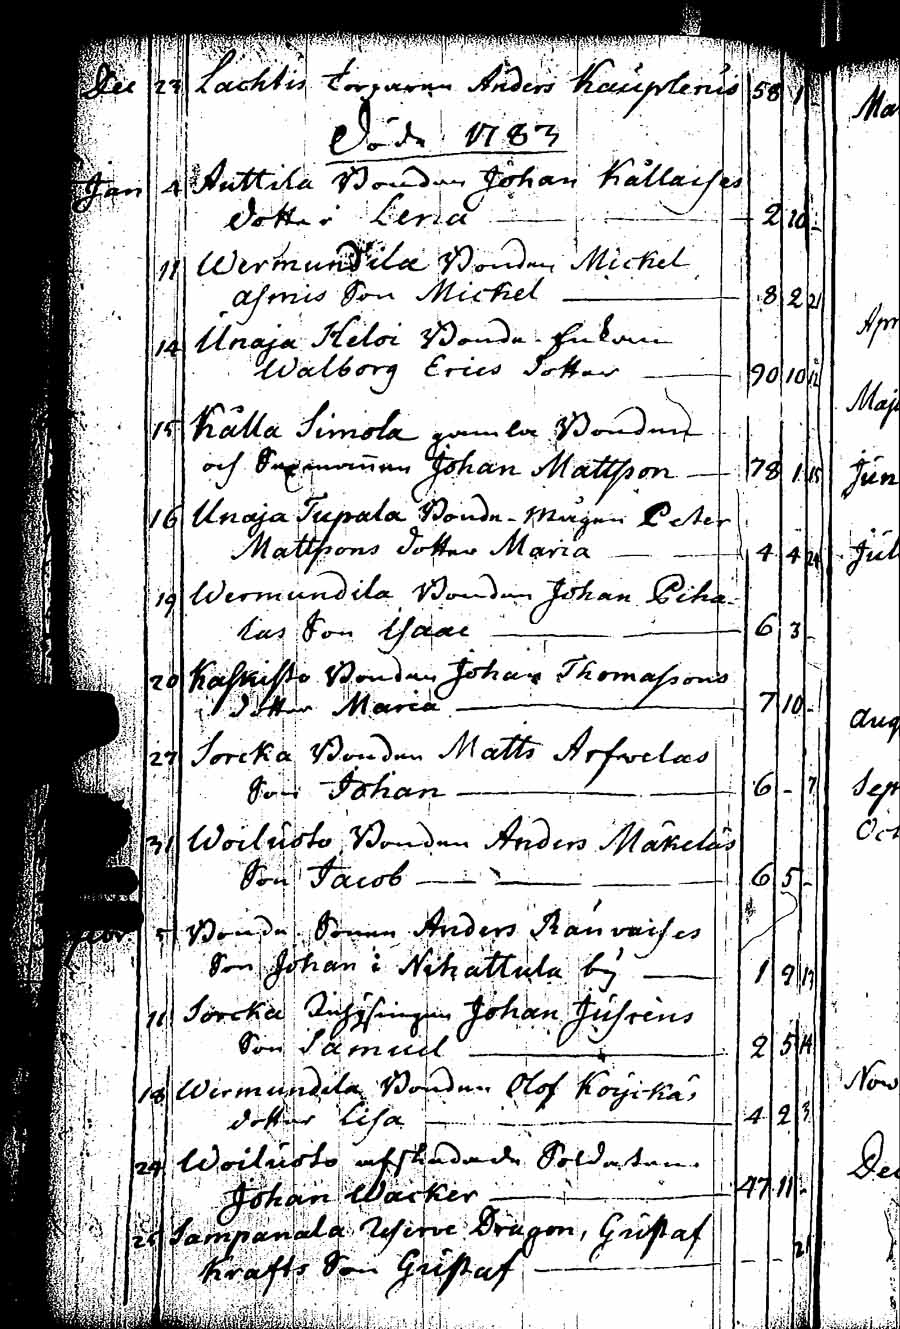 Dec 23 Lachtis Torparen Anders Kauplerus 58 1 -
Döde 1783
Jan 4 Anttila Bonden Johan Källaises
dotter Lena 2 10 -
11 Wermundila Bonden Mickel
Asmis Son Mickel 8 2 21
14 Unaja Heloi Bonde Enkan
Walborg Erics Dotter 90 10 12
15 Kålla Simola gamla Bonden
och Sexmannen Johan Mattsson 78 1 15
16 Unaja Tupala Bonde-Mågen Peter
Mattssons dotter Maria 4 4 24
19 Wermundila Bonden Johan Piha-
las Son Isaac 6 3 -
20 Kaskisto Bonden Johan Thomassons
dotter Maria 7 10 -
27 Sorcka Bonden Matts Arfwelas
Son Johan 6 - 7
31 Woiluoto Bonden Anders Mäkeläs
Son Jacob 6 5 -
Febr 5 Bonde Sonen Anders Ränvaises
Son Johan i Nihattula bÿ 1 9 13
11 Sorcka Inhÿsingen Johan Jusrens
Son Samuel 2 5 14
18 Wermundila Bonden Olof Köÿckäs
dotter Lisa 4 2 3
24 Woiluoto afskedade Soldaten
Johan Wacker 47 11 -
25 Sampanala Reserve Dragon, Gustaf
Krafts Son Gustaf - - 21
Mar
Apr
Maj
Jun
Jul
Aug
Sept
Oct
Nov
Dec